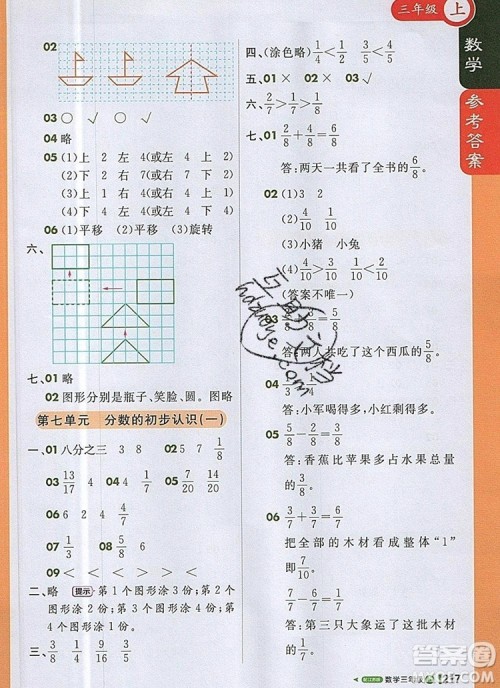 三年级 上
数学
参考答案
02
03 ○ √ ○ √
04 略
05 (1)上 2 左 4(或左 4 上 2)
(2)下 2 右 4(或右 4 下 2)
(3)上 4 右 7(或右 7 上 4)
(4)下 4 左 4(或左 4 下 4)
06 (1)平移 (2)平移 (3)旋转
六、
七、01 略
02 图形分别是瓶子、笑脸、圆。图略
第七单元 分数的初步认识(一)
一、01 八分之三 3 8 02 5 7 1/8
03 13/17 4 04 4 05 7/20 14/20
06 6 2 4 4/7
07 1/3 08 5/8 6
09 < < > > < >
二、略 提示 第 1 个图形涂 3 份;第 2 个图
形涂 2 份;第 3 个图形涂 4 份;第 4 个
图形涂 1 份。
三、3/8 1/4 3/9 4/16
四、(涂色略) 1/4<1/2 5/8>3/8
五、01 × 02 × 03 √
六、2/7>1/7 6/8>5/8
七、01 2/8+4/8=6/8
答:两天一共看了全书的6/8。
02 (1)3 2
(2)4/10 1/10
(3)小猪 小兔
(4)4/10>3/10
(答案不唯一)
03 2/8+3/8=5/8
答:两人共吃了这个西瓜的5/8。
04
答:小军喝得多,小红剩得多。
05 5/8-2/8=3/8
答:香蕉比苹果多占整个果园
的3/8。
06 2/7+3/7=5/7
把全部的木材看成整体“1”
即7/7
7/7-5/7=2/7
答:第三只大象运了这批木材
的2/7。
互助文档
hdzuoye.com
数学三年级
答案圈